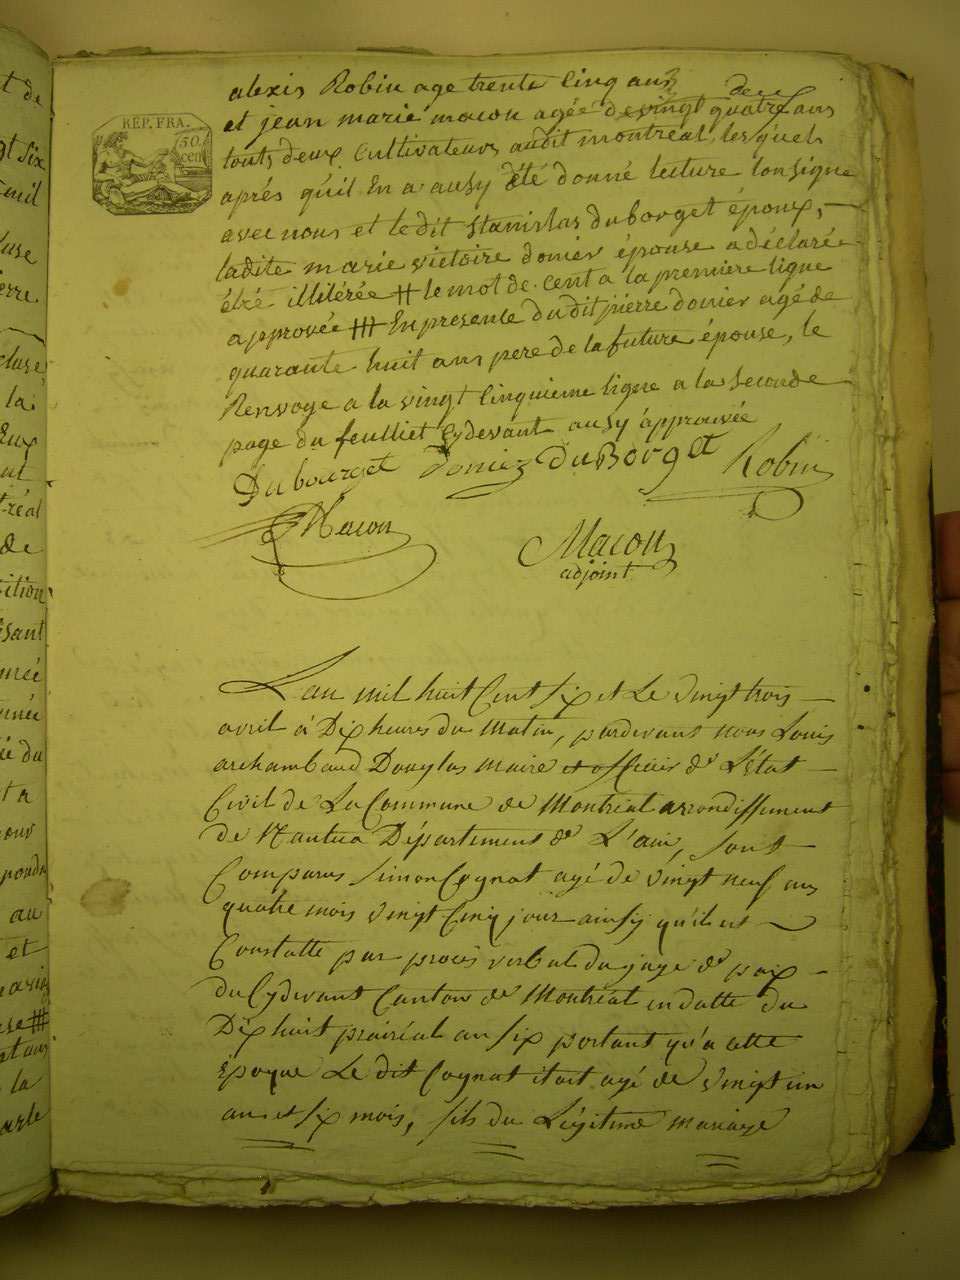 REP. FRA.
50.
cen
alexis Robin age trente Cinq ans
et jean marie macon agée de vingt quatre ans
touts deux Cultivateurs audit montreal, les quels
aprés qu'il En a ausy été donné lecture lon signe
avec nous et le dit stanislas duborget époux,
ladite marie victoire donier épouse a déclarée
étré illilérée ++ le mot de cent a la premiere ligne
approvée +++ En presente du dit pierre donier agé de
quarante huit ans pere de la future épouse, le
Renvoye a la vingt Cinquieme ligne a la seconde
page du feulliet Cydevant ausy ápprouvée
Dubourget Donier DuBorget Robin
Macon
Macon
adjoint
L'an mil huit Cent six et Le vingt trois
avril á Dix heures du Matin, pardevant nous Louis
archambaud Douglas maire et officier de L'état
Civil de La Commune de Montréal arrondissement
de Nantua Département de L'ain, sont
Comparus Simon Cognat agé de vingt neuf ans
quatre mois vingt Cinq jour ainsy qu'il est
Constatte par procès verbal du juge de paix
du Cydevant Canton de Montréal en datte du
Dix huit prairéal an six portant qu'a cette
Epoque Le dit Cognat était agé de vingt un
an et six mois, fils du Légitime mariage